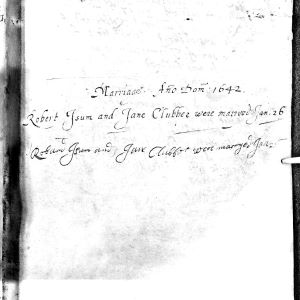 Marriages Año Dom̄ 1642
Robert Isum and Jane Clubbee were marryed Jan. 26
Robart Isum and Jane Clubbe were marryed Jan